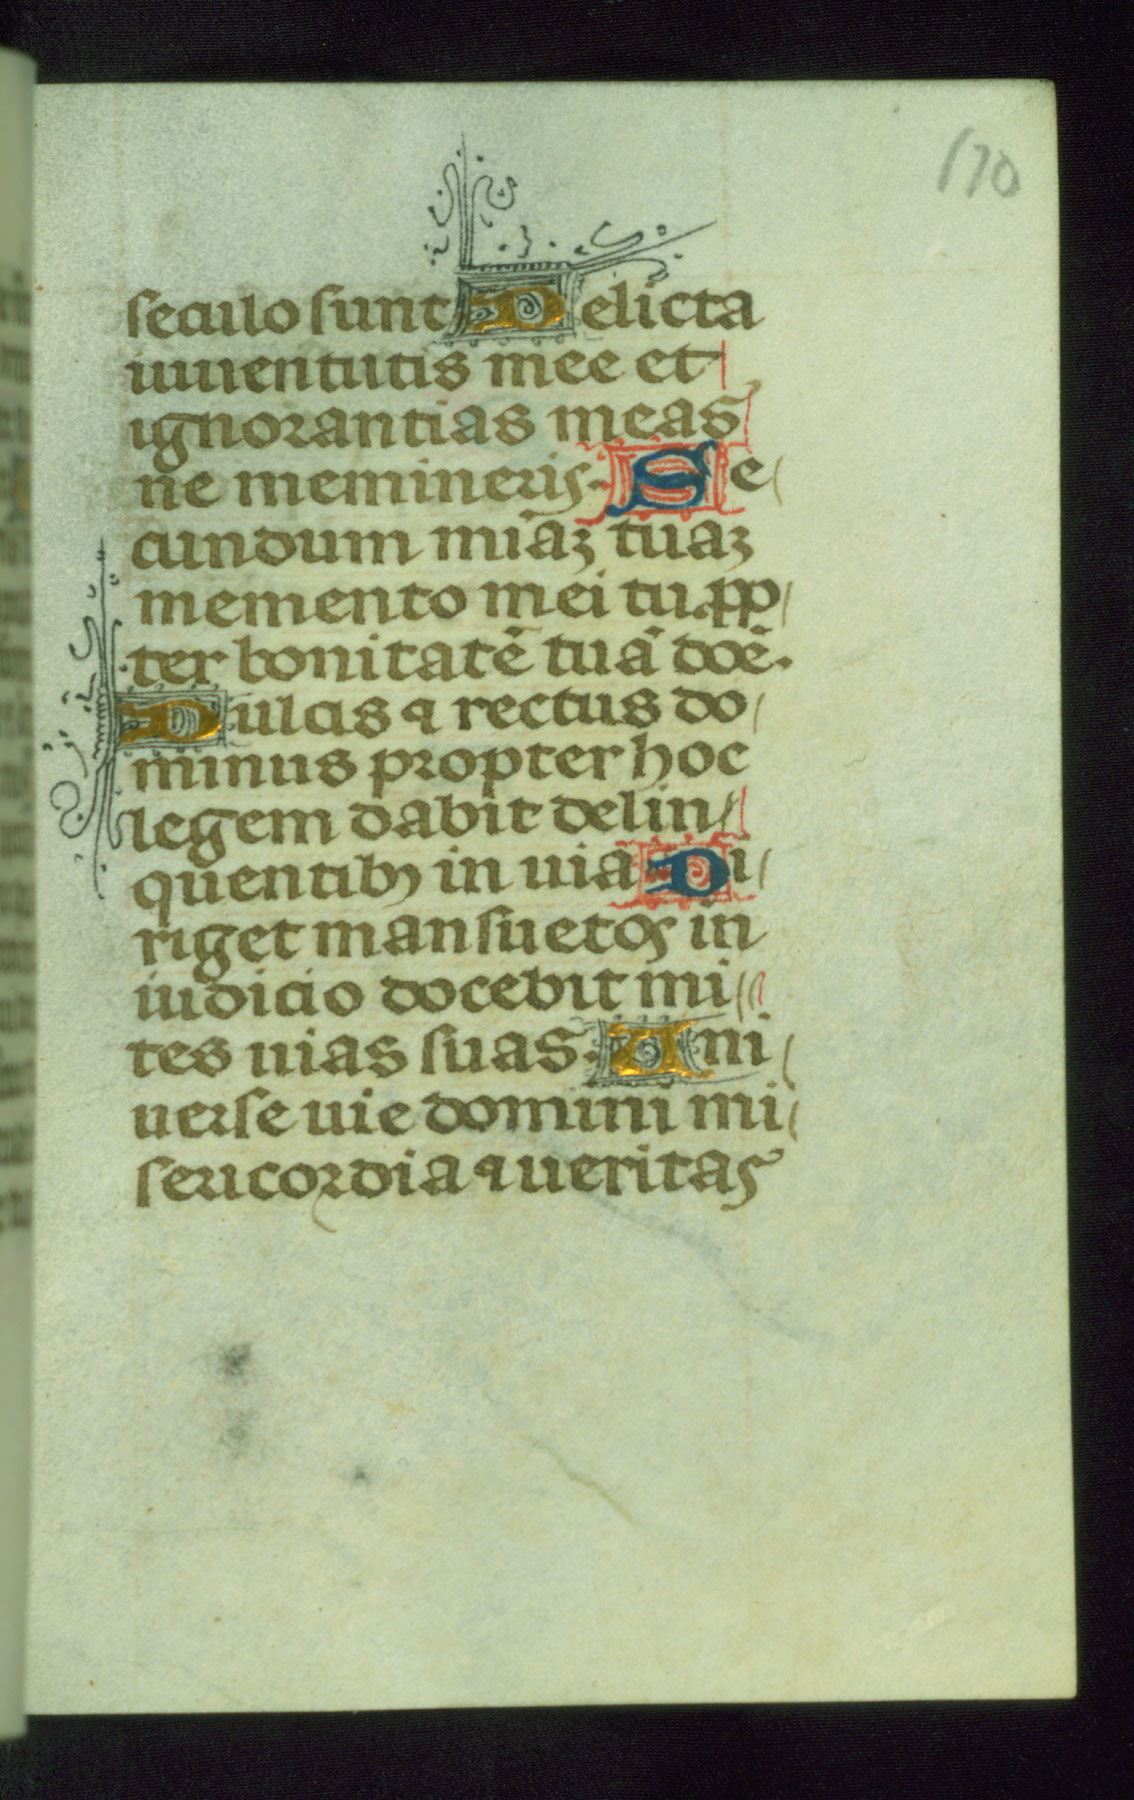 170
seculo sunt Delicta
iuuentutis mee et
ignorantias meas
ne memineris. Se
cundum mi͞aꝫ tuaꝫ
memento mei tu. ꝓp
ter bonitatē tuā doē.
Dulcis ⁊ rectus do
minus propter hoc
legem dabit delin
quentibꝫ in uia Di
riget mansuetos in
iudicio docebit mi
tes uias suas. Uni
uerse uie domini mi
sericordia ⁊ ueritas